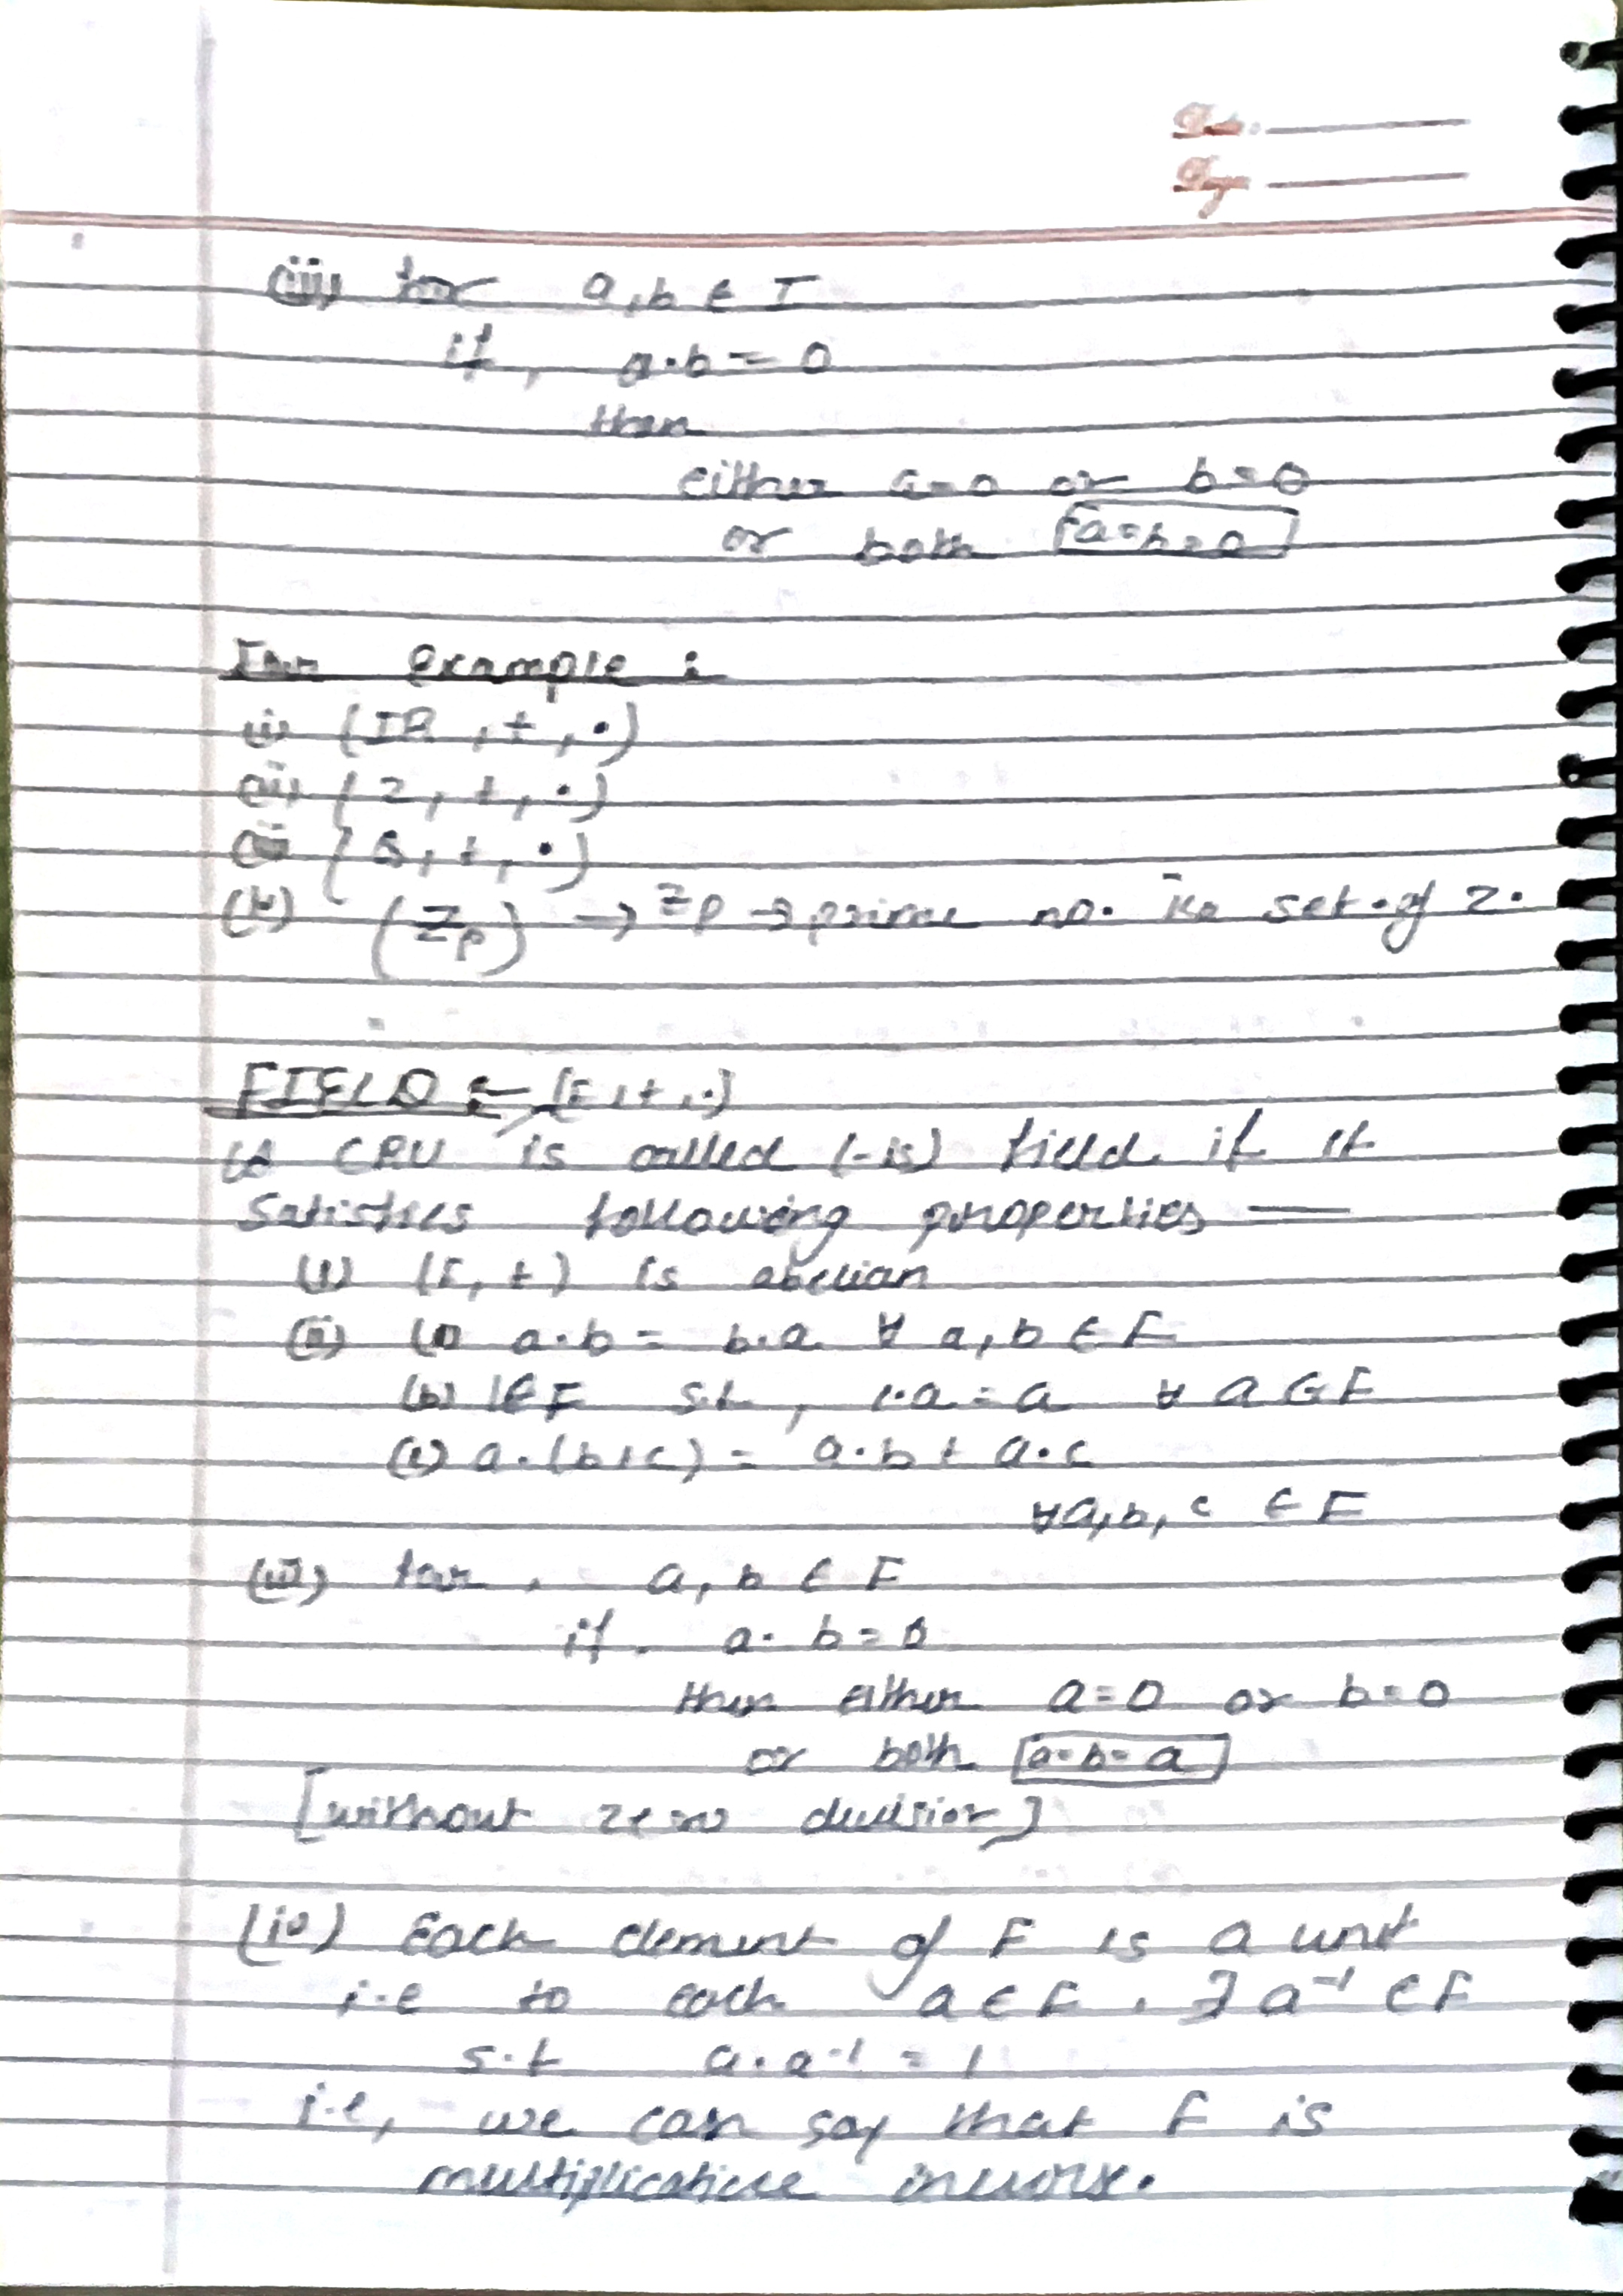 Date:
Page
(iii) for a,b ∈ I
if, a·b = 0
then
either a=0 or b=0
or both [a=b=0]
For example :
(i) (IR, +, ·)
(ii) (Z, +, ·)
(iii) (Q, +, ·)
(iv) (Zp) → Zp → prime no. ka set of Z.
FIELD :- (F, +, ·)
A CRU is called (-is) field if it
satisfies following properties —
(i) (F, +) is abelian
(ii) (a) a·b = b·a ∀ a, b ∈ F
(b) 1∈F s.t, 1·a = a ∀ a ∈ F
(c) a·(b+c) = a·b + a·c
∀a,b, c ∈ F
(iii) for, a, b ∈ F
if. a· b = 0
then either a=0 or b=0
or both [a=b=a]
[without zero division]
(iv) Each element of F is a unit
i.e to each a ∈ F, ∃ a⁻¹ ∈ F
s.t a·a⁻¹ = 1
i.e, we can say that F is
multiplicative inverse.